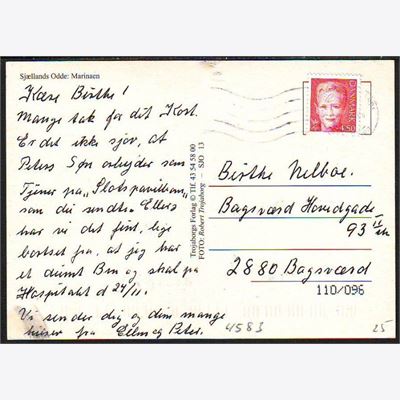 Sjællands Odde: Marinaen
Kære Birthe!
Mange tak for dit Kort.
Er det ikke sjov, at
Peters Søn arbejder som
Tjener på "Slotspavillonen",
som du sendte. Ellers
har vi det fint, lige
bortset fra, at jeg har
et dumt Ben og skal på
Hospitalet d 24/11.
Vi sender dig og dine mange
hilsner fra Ellen og Peter.
Trojaborgs Forlag © Tlf. 43 54 58 00
FOTO: Robert Trojaborg – SJO 13
DANMARK
4.50
Birthe Nelboe.
Bagsværd Hovedgade
93
2880 Bagsværd
110/096
4583
25